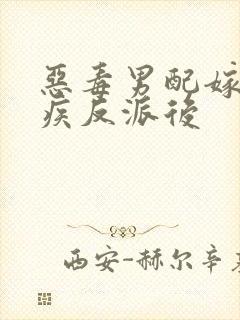 惡毒男配嫁
疾反派後
西安-赫尔辛基